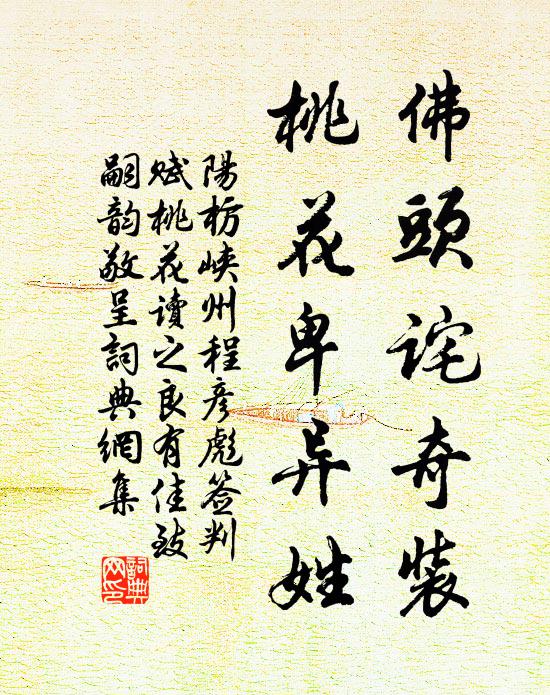 佛頭詫奇裝
桃花卑异姓
陽枋峽州程彥彪簽判
賦桃花讀之良有佳致
嗣韵敬呈詞典網集
詞典网印